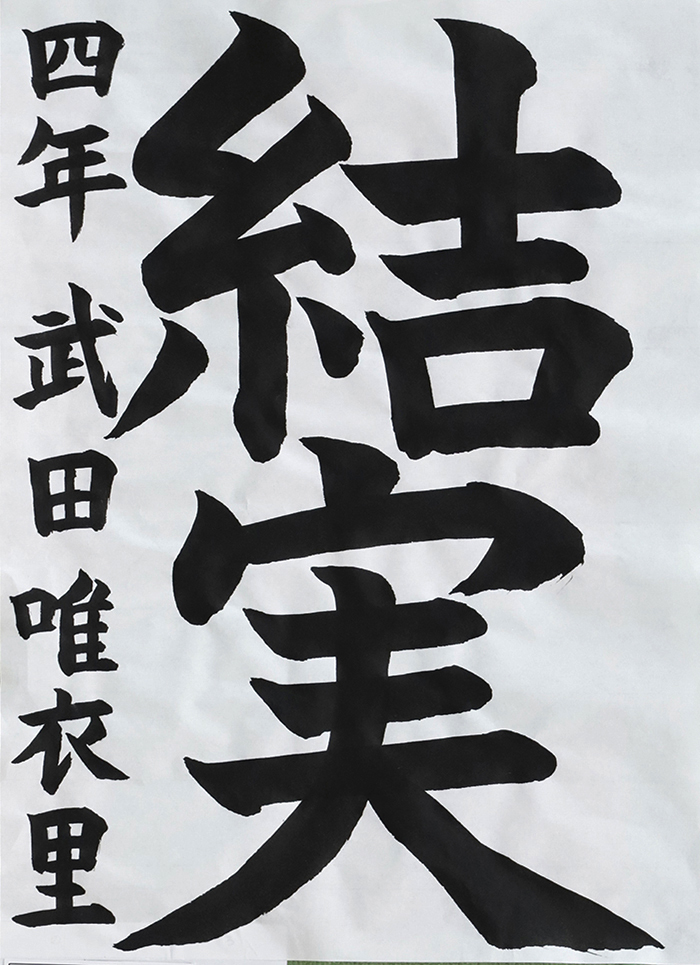 結実
四年 武田唯衣里